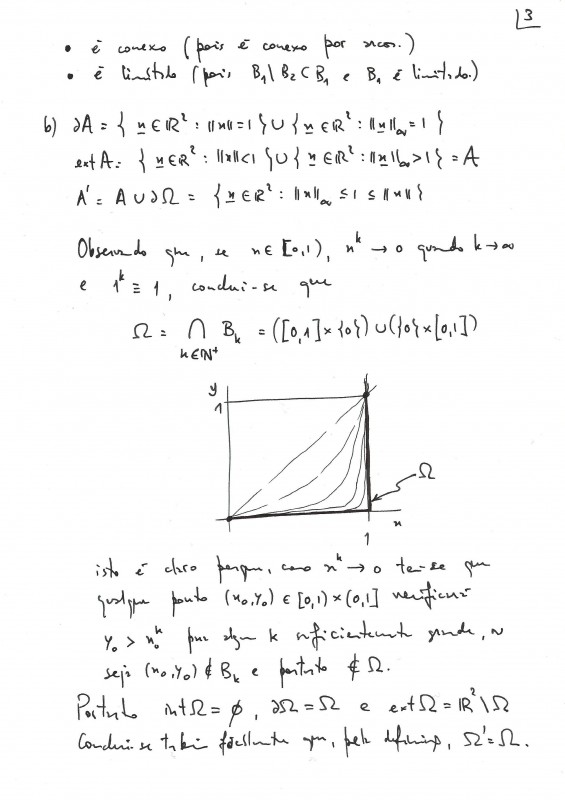 3
• é conexo (pois é conexo por arcos.)
• é limitado (pois B₁\B₂ ⊂ B₁ e B₁ é limitado.)
b) ∂A = { x ∈ ℝ² : ||x|| = 1 } ∪ { x ∈ ℝ² : ||x||∞ = 1 }
ext A = { x ∈ ℝ² : ||x|| < 1 } ∪ { x ∈ ℝ² : ||x||∞ > 1 } = A
A' = A ∪ ∂Ω = { x ∈ ℝ² : ||x||∞ ≤ 1 ≤ ||x|| }
Observando que, se x ∈ [0,1), xᵏ → 0 quando k → ∞
e 1ᵏ ≡ 1, conclui-se que
Ω = ⋂ Bₖ = ([0,1]×{0}) ∪ ({0}×[0,1])
k∈ℕ⁺
y
1
Ω
x
1
isto é claro porque, como xᵏ → 0 tem-se que
qualquer ponto (x₀,y₀) ∈ [0,1)×(0,1] verificará
y₀ > x₀ᵏ para algum k suficientemente grande, ou
seja (x₀,y₀) ∉ Bₖ e portanto ∉ Ω.
Portanto int Ω = ∅, ∂Ω = Ω e ext Ω = ℝ²\Ω
Conclui-se também facilmente que, pela definição, Ω' = Ω.